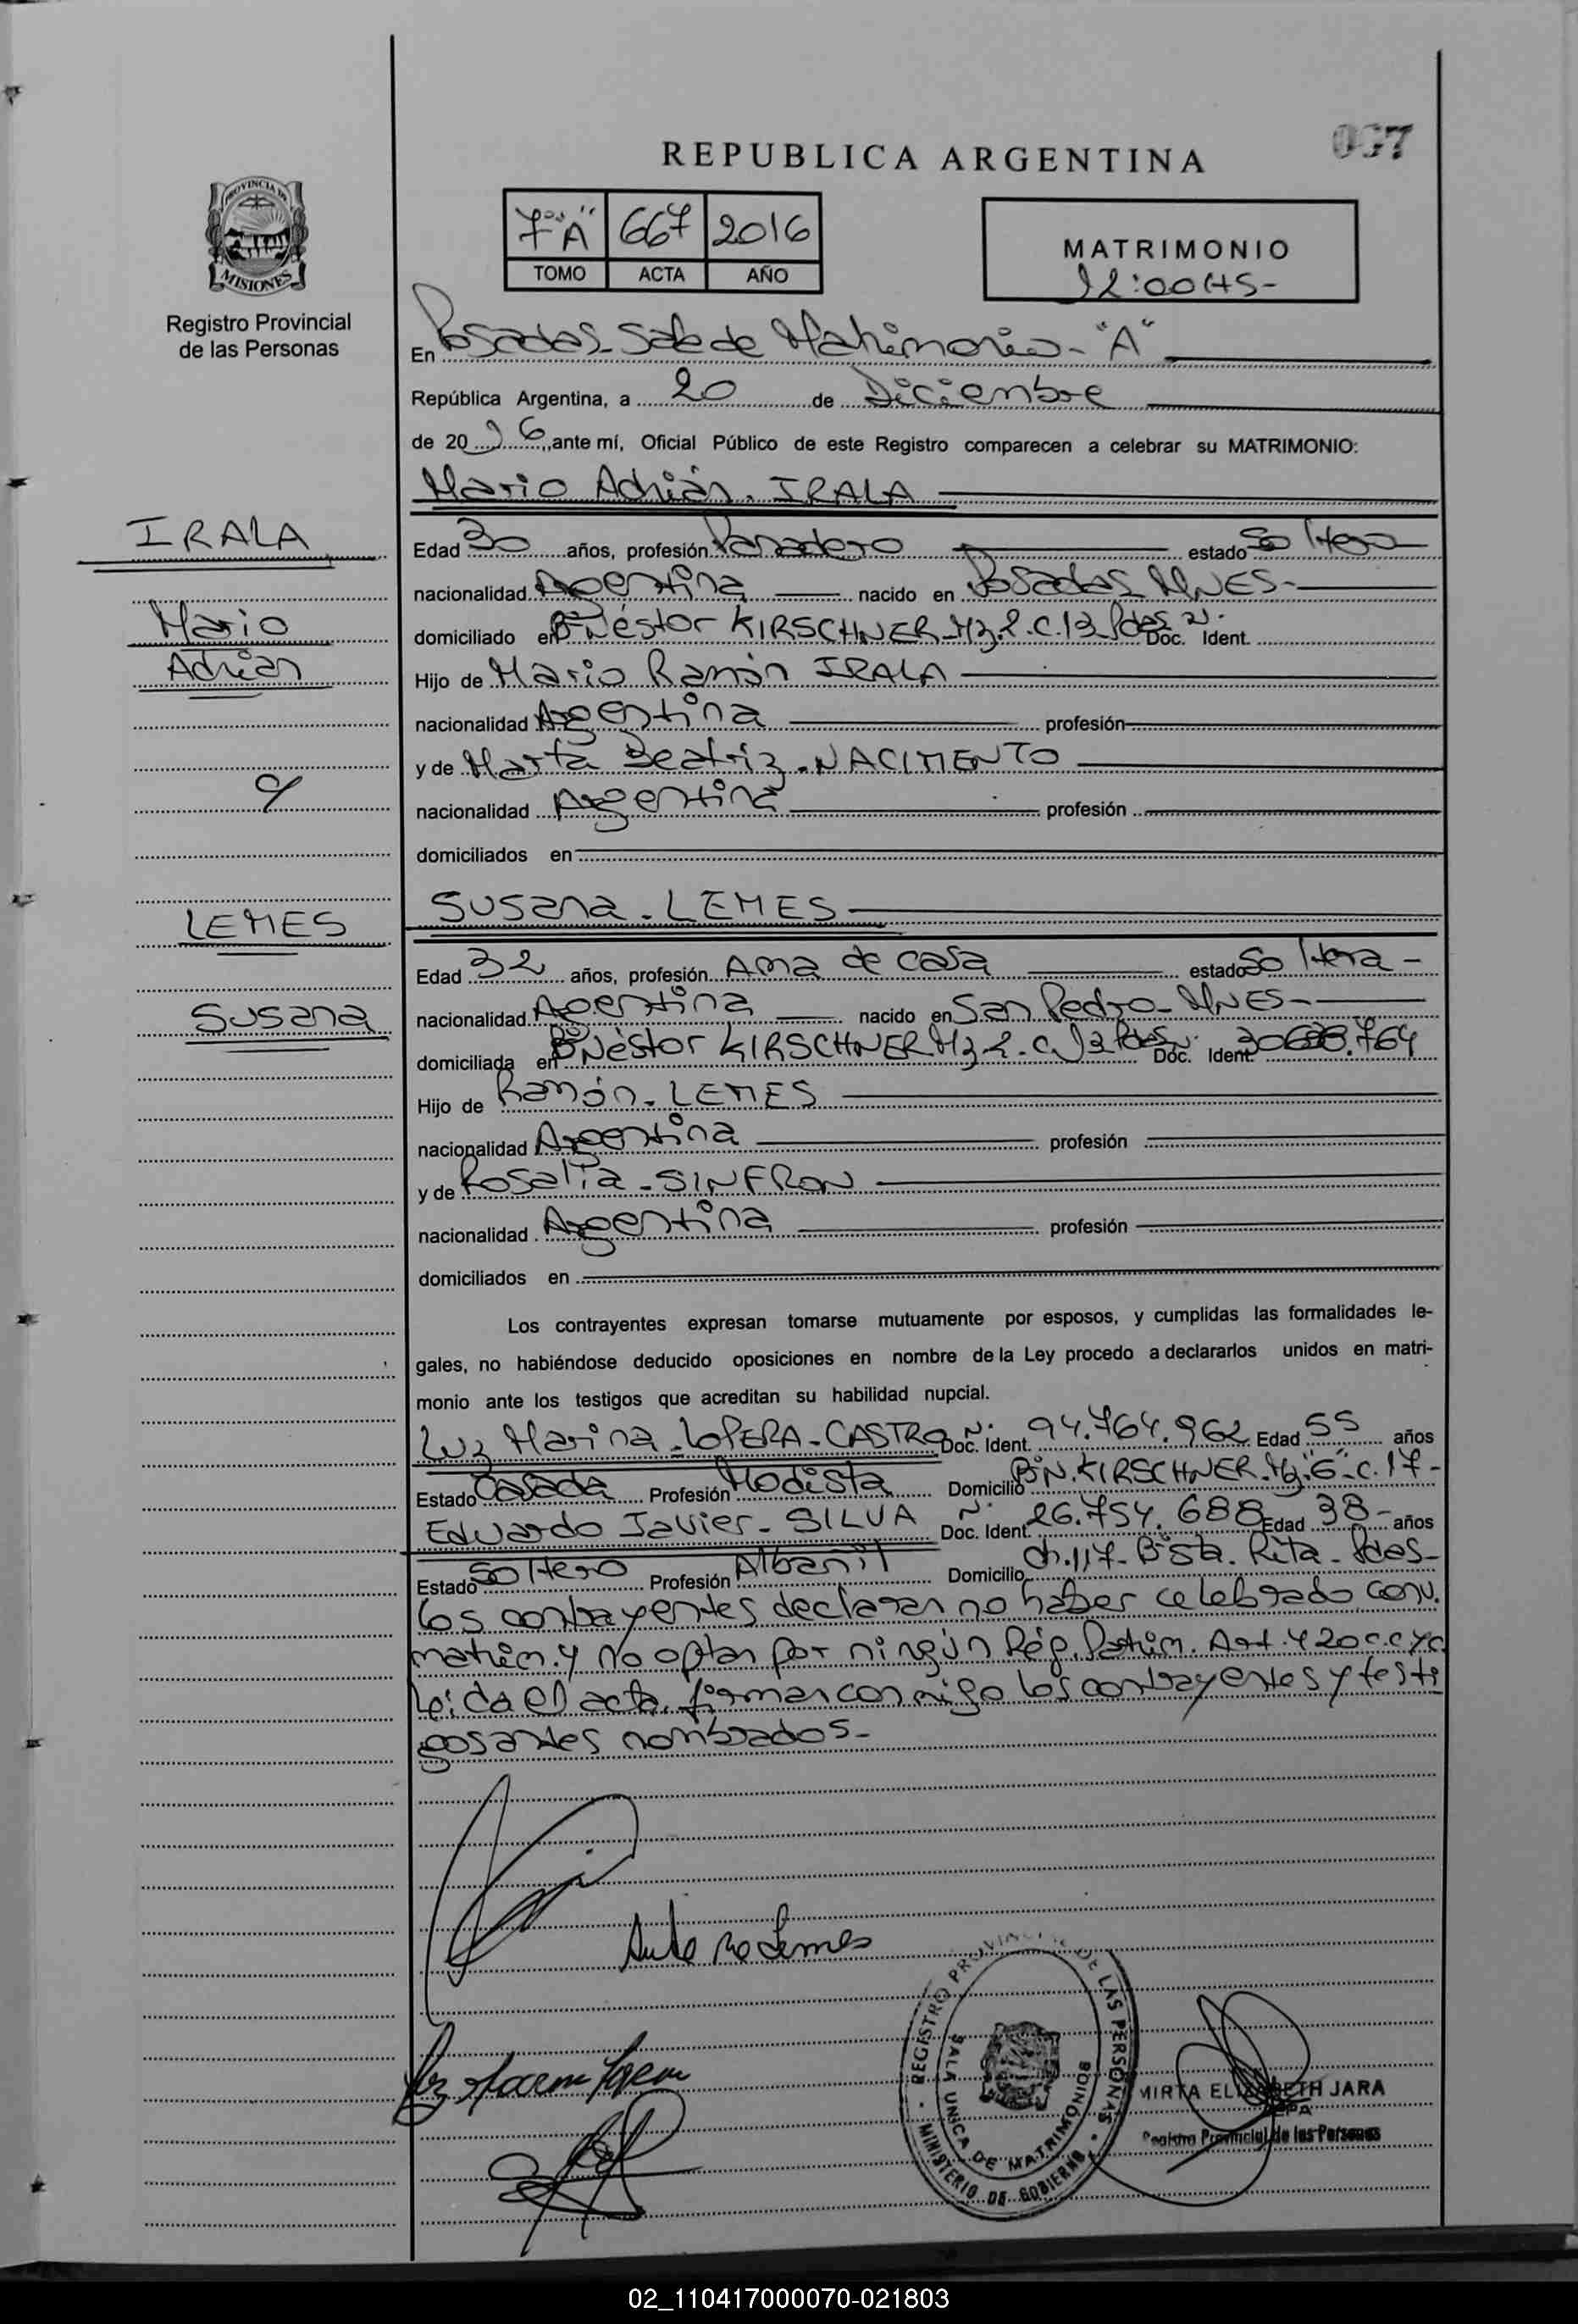 REPUBLICA ARGENTINA
7º "A" 667 2016
TOMO ACTA AÑO
MATRIMONIO
12:00HS-
PROVINCIA DE
MISIONES
Registro Provincial
de las Personas
En Posadas-Sala de Matrimonio-"A"
República Argentina, a 20 de Diciembre
de 2016, ante mí, Oficial Público de este Registro comparecen a celebrar su MATRIMONIO:
Mario Adrián. IRALA
IRALA
Edad 30 años, profesión Panadero estado Soltero
nacionalidad Argentina nacido en Posadas MNES-
Mario
domiciliado en Bº Néstor KIRSCHNER-Mz.2.C.13 Pdas Nº Doc. Ident.
Adrián
Hijo de Mario Ramón IRALA
nacionalidad Argentina profesión
y de Marta Beatriz-NACIMENTO
c/
nacionalidad Argentina profesión
domiciliados en
Susana-LEMES
LEMES
Edad 32 años, profesión Ama de casa estado Soltera-
Susana
nacionalidad Argentina nacido en San Pedro-MNES-
domiciliada en Bº Néstor KIRSCHNER Mz 2-C.13 Pdas Nº Doc. Ident.
Hijo de Ramón-LEMES
nacionalidad Argentina profesión
y de Rosalia-SINFRON
nacionalidad Argentina profesión
domiciliados en
Los contrayentes expresan tomarse mutuamente por esposos, y cumplidas las formalidades le-
gales, no habiéndose deducido oposiciones en nombre de la Ley procedo a declararlos unidos en matri-
monio ante los testigos que acreditan su habilidad nupcial.
Luz Marina-LOPERA-CASTRO Nº Doc. Ident. 94.764.962 Edad 55 años
Estado Casada Profesión Modista Domicilio Bº N.KIRSCHNER-Mz."6"-C.17-
Eduardo Javier-SILVA Nº Doc. Ident. 26.754.688 Edad 38- años
Estado Soltero Profesión Albañil Domicilio Ch.117-Bº Sta. Rita-Pdas-
Los contrayentes declaran no haber celebrado conv.
matrim. y no optan por ningún Rég. Patrim. Art. 420 c.c y c.
Leída el acta, firman conmigo los contrayentes y testi
gos antes nombrados-
Lemes
REGISTRO PROVINCIAL DE LAS PERSONAS
SALA UNICA DE MATRIMONIOS
MINISTERIO DE GOBIERNO
MIRTA ELIZABETH JARA
Registro Provincial de las Personas
02_110417000070-021803